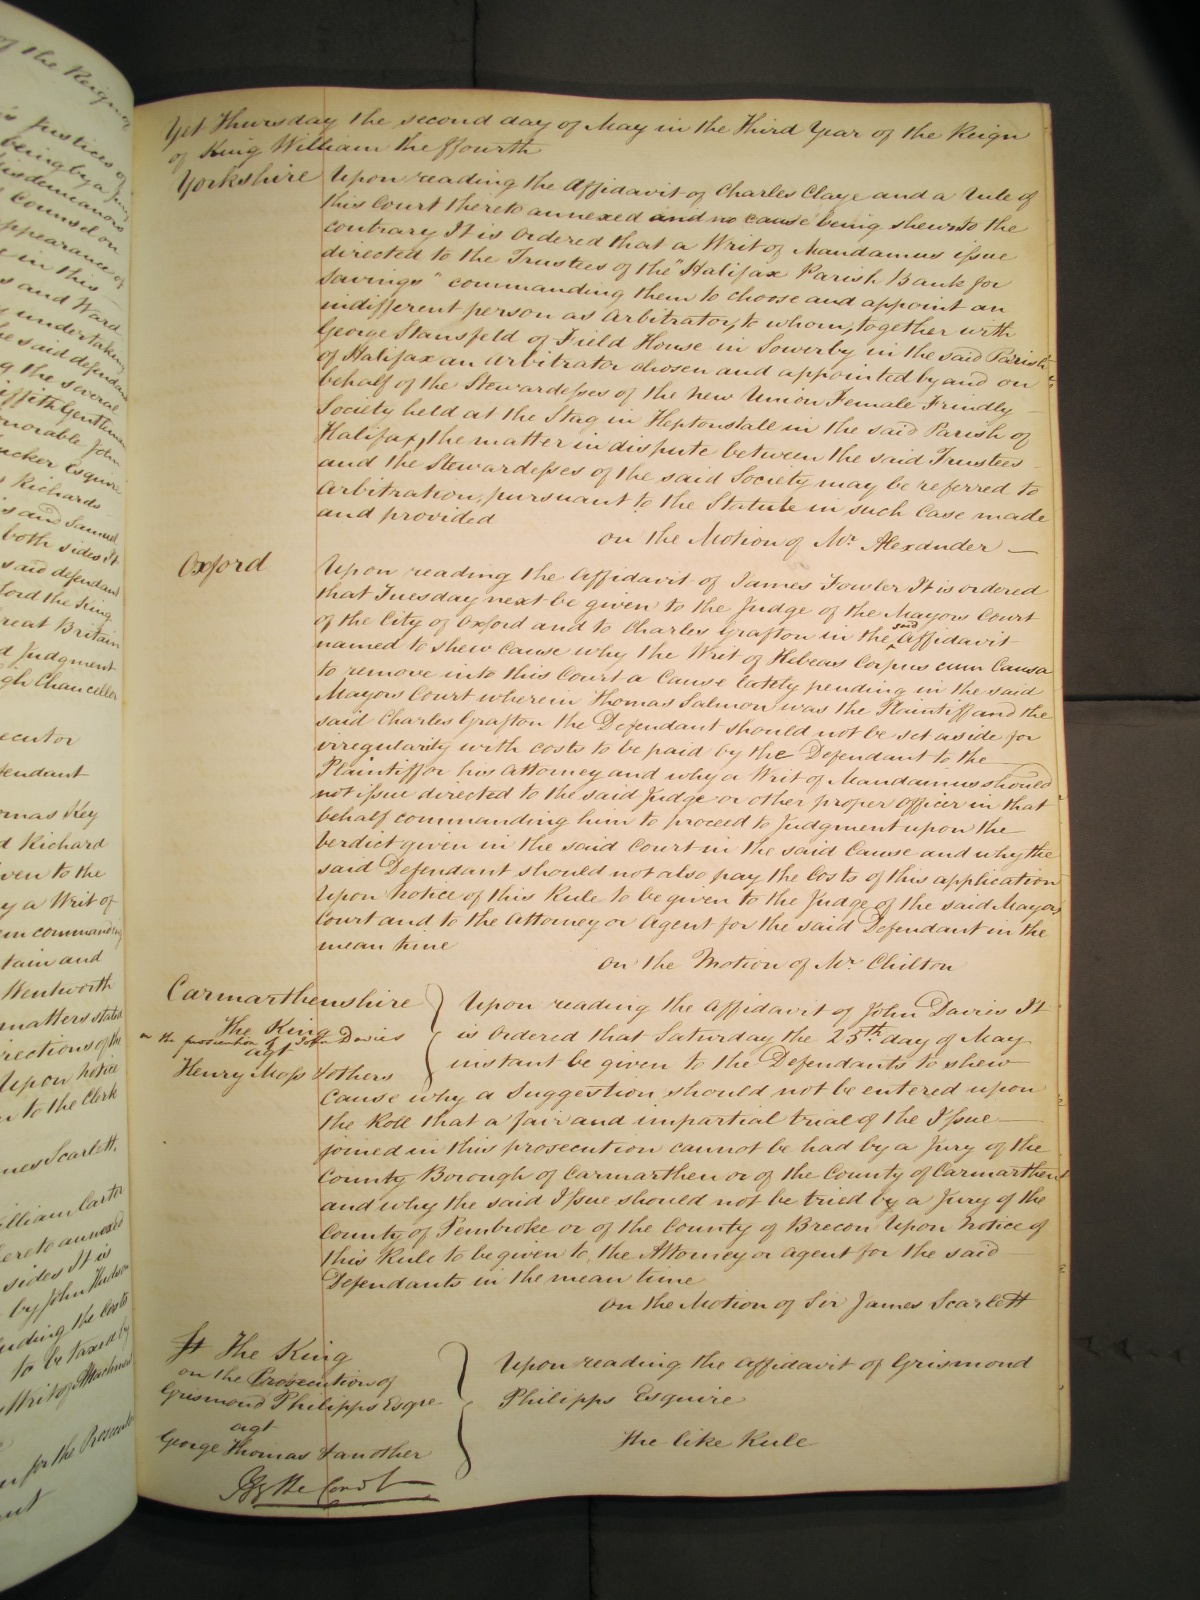 of the Reign of
's Justices of
being by a Jury
Misdemeanors
Counsel on
appearance of
in this
s and Ward
undertaking
he said defendant
g the several
Griffith Gentleman
Honorable John
Tucker Esquire
Richards
is and Samuel
both sides It
said defendant
ford the King
reat Britain
d Judgment
gh Chancellor
ecutor
fendant
omas Key
d Richard
iven to the
y a Writ of
em commanding
tain and
Wentworth
matters stated
rections of the
Upon notice
n to the Clerk
mes Scarlett
illiam Carter
hereto annexed
sides It is
by John Hudson
uding the Costs
to be taxed by
Writ of Attachment
for the Prosecutor
Yet Thursday the second day of May in the Third Year of the Reign
of King William the ffourth
Yorkshire Upon reading the Affidavit of Charles Claye and a Rule of
this Court thereto annexed and no cause being shewn to the
contrary It is ordered that a Writ of Mandamus issue
directed to the Trustees of the "Halifax Parish Bank for
Savings" commanding them to choose and appoint an
indifferent person as Arbitrator, to whom, together with
George Stansfeld of Field House in Sowerby in the said Parish
of Halifax an arbitrator chosen and appointed by and on
behalf of the Stewardesses of the New Union Female Frindly
Society held at the Stag in Heptonstall in the said Parish of
Halifax, the matter in dispute between the said Trustees
and the Stewardesses of the said Society may be referred to
Arbitration, pursuant to the Statute in such Case made
and provided
on the Motion of Mr. Alexander
Oxford Upon reading the Affidavit of James Fowler It is ordered
that Tuesday next be given to the Judge of the Mayors Court
of the City of Oxford and to Charles Grafton in the said Affidavit
named to shew Cause why the Writ of Habeas Corpus cum Causa
to remove into this Court a Cause lately pending in the said
Mayors Court wherein Thomas Salmon was the Plaintiff and the
said Charles Grafton the Defendant should not be set aside for
irregularity with costs to be paid by the Defendant to the
Plaintiff or his Attorney and why a Writ of Mandamus should
not issue directed to the said Judge or other proper officer in that
behalf commanding him to proceed to Judgment upon the
verdict given in the said Court in the said Cause and why the
said Defendant should not also pay the Costs of this application
Upon notice of this Rule to be given to the Judge of the said Mayors
Court and to the Attorney or Agent for the said Defendant in the
mean time
on the Motion of Mr. Chilton
Carmarthenshire Upon reading the Affidavit of John Davies It
The King
on the prosecution of John Davies is ordered that Saturday the 25th day of May
agt
Henry Moss & others instant be given to the Defendants to shew
Cause why a Suggestion should not be entered upon
the Roll that a fair and impartial trial of the Issue
joined in this prosecution cannot be had by a Jury of the
County Borough of Carmarthen or of the County of Carmarthen
and why the said Issue should not be tried by a Jury of the
County of Pembroke or of the County of Brecon Upon Notice of
this Rule to be given to the Attorney or agent for the said
Defendants in the mean time
on the Motion of Sir James Scarlett
The King
on the Prosecution of Upon reading the Affidavit of Grismond
Grismond Philipps Esqre Philipps Esquire
agt
George Thomas & another The like Rule
By the Court